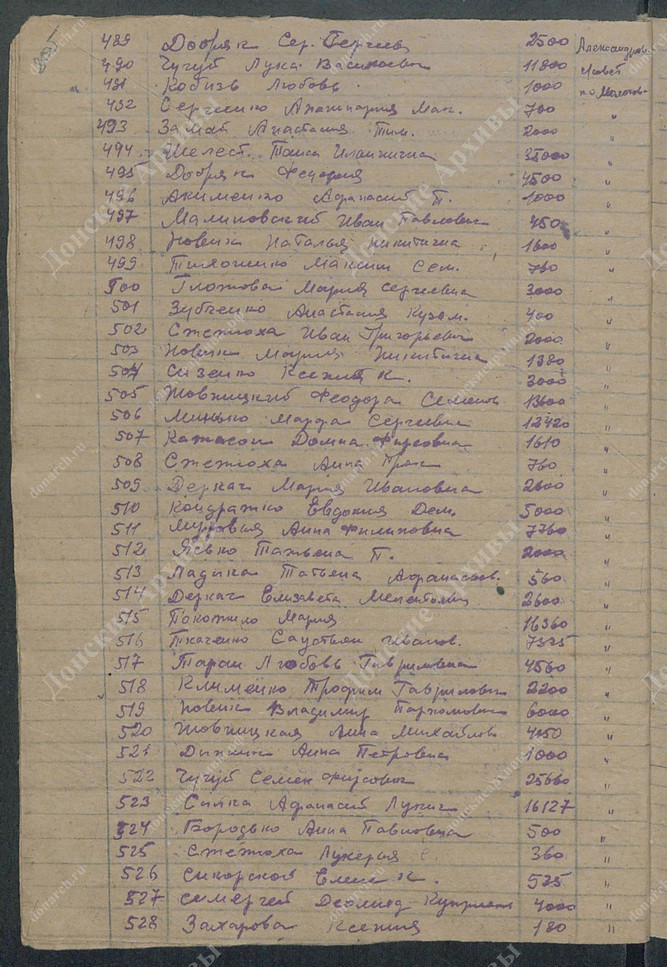 489 Добряк Сер. Сергеев 2500 Александров.
490 Чугуб Лука Васильевич 11800
491 Кобизь Любовь 1000
492 Сергиенко Мак. 700 "
493 Замай Анастасия Тим. 2000 "
494 Шелест Таиса 35000 "
495 Добряк Федория 4500 "
496 Акименко Афанасий П. 1000 "
497 Малиновский Иван Павлович 450 "
498 Новик Наталья Никитична 1600 "
499 Тимошенко Максим Сем. 750 "
500 Мария Сергеевна 3000 "
501 Зубченко Анастасия Кузьм. 400 "
502 Стетюха Иван Григорьевич 2000 "
503 Новик Мария Никитична 1380 "
504 Сизенко Ксения К. 3000 "
505 Жовницкий Феодора Семенов 13600 "
506 Минько Марфа Сергеевна 12420 "
507 Домна Фирсовна 1610 "
508 Стетюха Анна 760 "
509 Деркач Мария Ивановна 2600 "
510 Кондратко Евдокия Дем. 5000 "
511 Анна Филиповна 7760 "
512 Ясько Татьяна П. 2000 "
513 Ладика Татьяна Афанасьев. 560 "
514 Деркач Елизавета 2600 "
515 Покотило Мария 16360 "
516 Ткаченко Савостьян Иванов. 7525 "
517 Таран Любовь Гавриловна 4560 "
518 Клименко Трофим Гаврилович 2200 "
519 Новик Владимир Пархомович 6000 "
520 Жовницкая Анна Михайлов 4050 "
521 Анна Петровна 1000 "
522 Чугуб Семен Фирсович 25660 "
523 Синка Афанасий Лукич 16127 "
524 Бородько Анна Павловна 500 "
525 Стетюха Лукерья 360 "
526 Сикорская Елен К. 525 "
527 Леонид 4000 "
528 Захарова Ксения 180 "
донские Архивы
donarch.ru